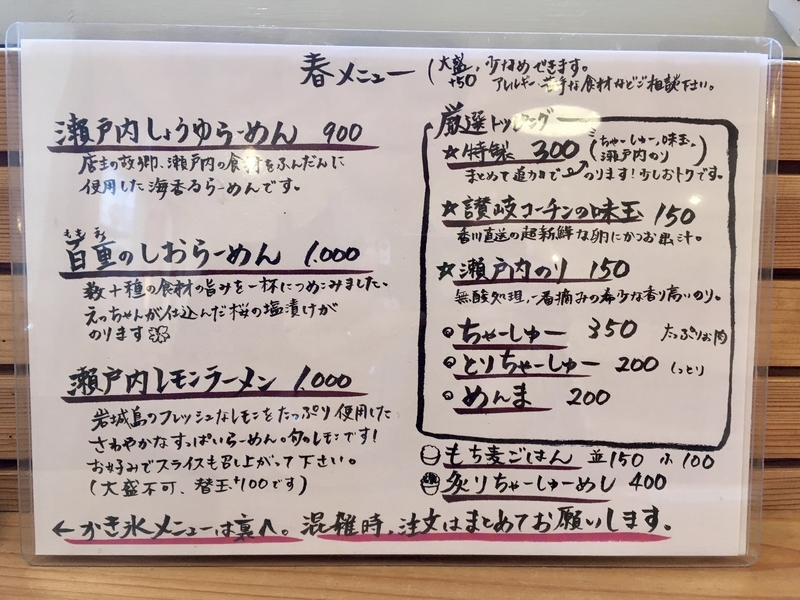 春メニュー
(大盛、少なめできます。
+50
アレルギー、苦手な食材などご相談下さい。
瀬戸内しょうゆらーめん 900
店主の故郷、瀬戸内の食材をふんだんに
使用した海香るらーめんです。
ももがさね
百重のしおらーめん 1.000
数十種の食材の旨みを一杯につめこみました。
えっちゃんが仕込んだ桜の塩漬けが
のります
瀬戸内レモンラーメン 1.000
岩城島のフレッシュなレモンをたっぷり使用した
さわやかなすっぱいらーめん。旬のレモンです!
お好みでスライスも召し上がって下さい。
(大盛不可、替玉+100です)
厳選トッピング
☆特製 300 (ちゃーしゅー、味玉、
瀬戸内のり)
まとめて追加でのります!少しおトクです。
☆讃岐コーチンの味玉 150
香川直送の超新鮮な卵にかつお出汁。
☆瀬戸内のり 150
無酸処理、一番摘みの希少な香り高いのり。
ちゃーしゅー 350 たっぷりお肉
とりちゃーしゅー 200 しっとり
めんま 200
もち麦ごはん 並150 小100
炙りちゃーしゅーめし 400
←かき氷メニューは裏へ。混雑時、注文はまとめてお願いします。